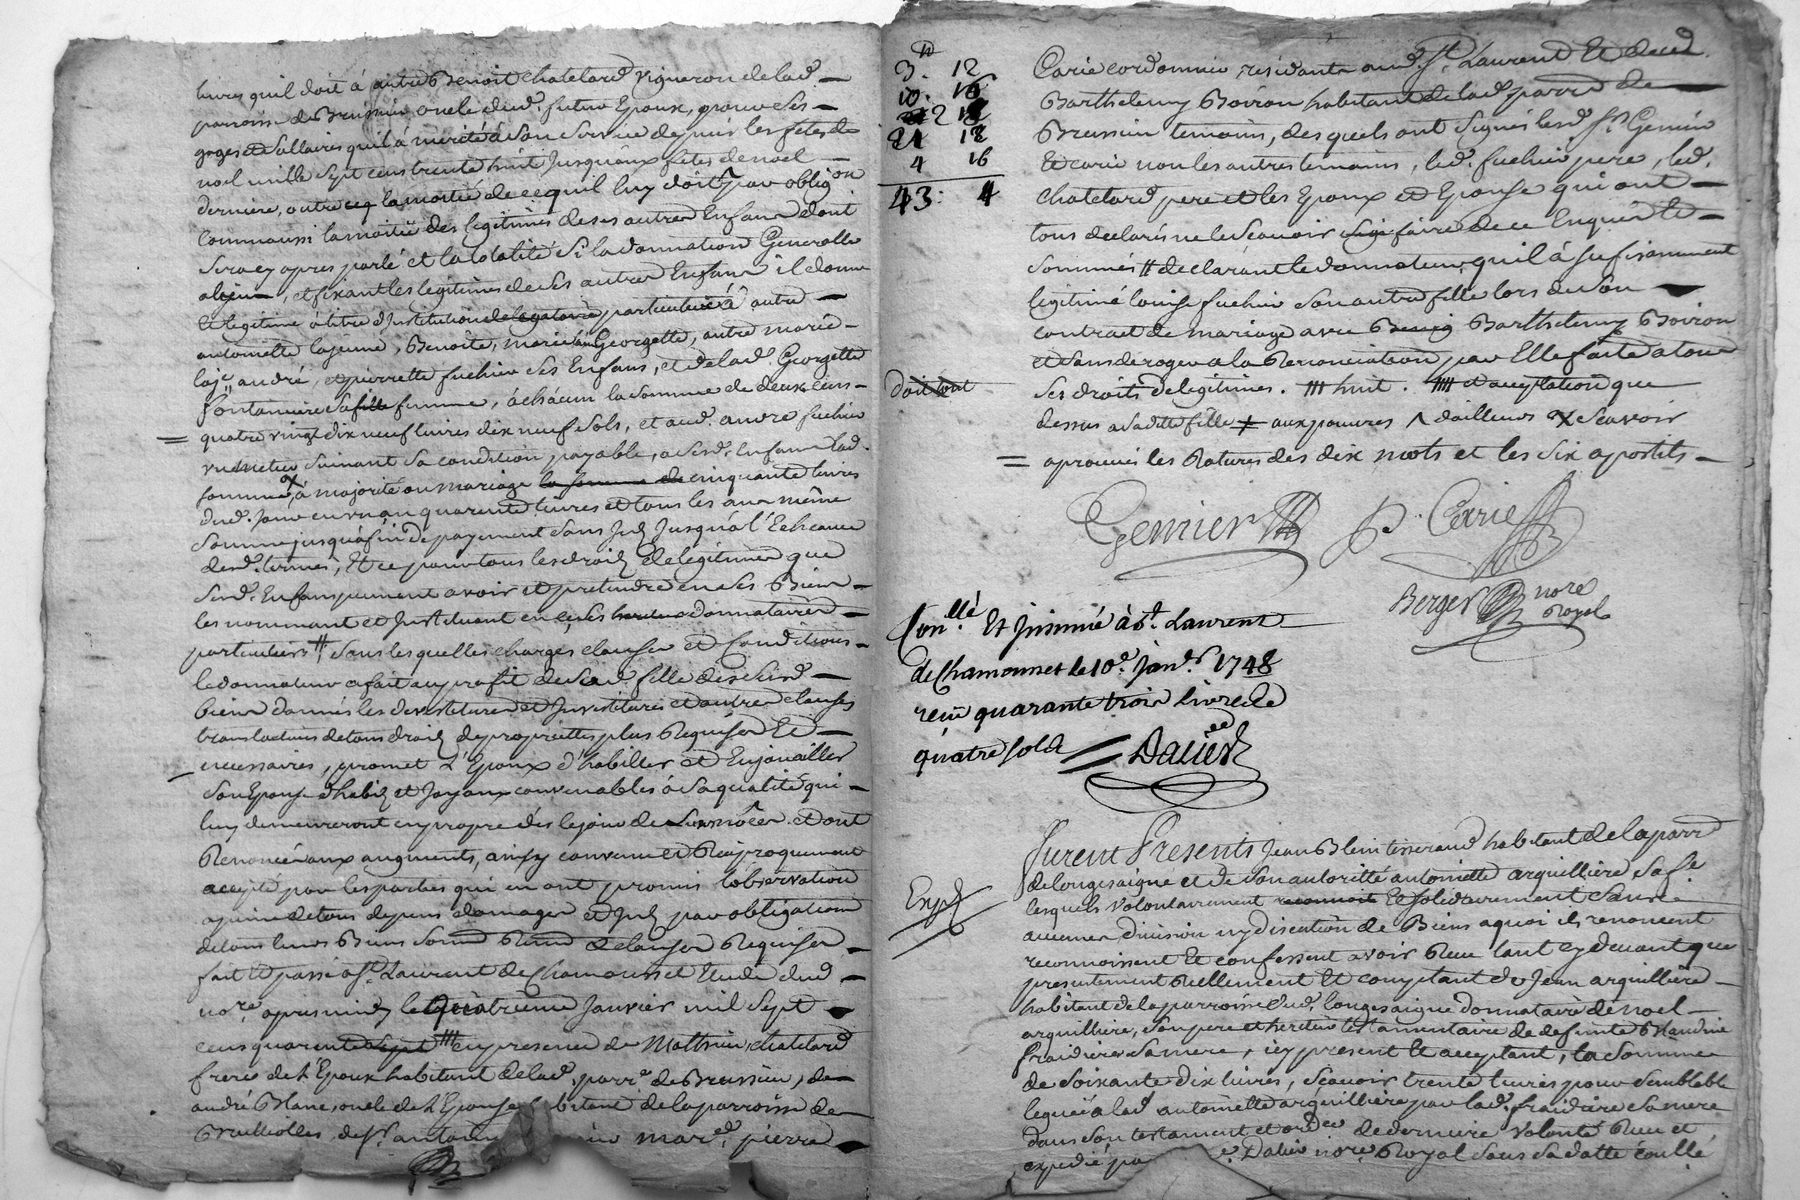 livres qu'il doit à autre Benoit Chatelard vigneron de lad.
parroisse de Brussieu oncle dud. futur Epoux, pour ses
gages et sallaires qu'il à mérité à son service depuis les fetes de
noel mille sept cens trente huit jusquaux fetes de noel
derniere, outre ce la moitié de ce qu'il luy doit par oblig.on
comm'aussi la moitié des legitimes de ses autres Enfans dont
sera cy apres parlé et la totalité si la donnation Generalle
a lieu, et fixant les legitimes de ses autres Enfans il donne
et legitime à titre d'Institution de legataire particuliere à autre
antoinette la jeune, Benoite, marie, Georgette, autre marie
laj.e andré, et pierrette fuchier ses Enfans, et de lad. Georgette
fontaniere sa fille femme, à chacun la somme de deux cens
quatre vingt dix neuf livres dix neuf sols, et aud. andré fuchier
un metier suivant sa condition payable, a sesd. Enfans lad.
somme à majorité ou mariage la somme de cinquante livres
dud. jour en un an quarante livres et tous les ans même
somme jusqu'à fin de payement sans Int. jusqu'à l'Echeance
desd. termes, Et ce pour tous les droits de legitimes que
sesd. Enfans peuvent avoir et pretendre en ses Biens
les nommant et Instituant en ce, ses heritiers donnataires
particuliers # sous lesquelles charges clauses et Conditions
le donnateur a fait au profit de sad. fille de sesd.
biens donnés les devestitures et Investitures et autres clauses
translatives de tous droits de proprietté plus Requises Et
necessaires, promet l'Epoux d'habiller et Enjoualler
son Epouse d'habits et Joyaux convenables à sa qualité qui
luy demeureront en propre dès le jour de leurs nôces et ont
Renoncé aux augments, ainsy convenu et Reciproquement
accepté par les parties qui en ont promis l'observation
a peine de tous depens domages et Int. par obligation
de tous leurs Biens soumis. Renon. et clauses Requises
fait et passé à St. Laurent de Chamousset Etude dud.
no.re apres midy le Quatrieme Janvier mil sept
cens quarente sept #### en presence de Mathieu Chatelard
frere de l'Epoux habitant de lad. parr.e de Brussieu, de
andré Blanc oncle de l'Epouse habitant de la parroisse de
Brullolles, de Sr. antoine mar.ed pierre
3. 12
10. 16
2 18
21 18
4 16
43: 4
Carie cordonnier residants aud. St. Laurent Et de
Barthelemy Boiron habitant de lad. parr.e de
Brussieu temoins, desquels ont signés lesd. Srs. Genier
Et carie non les autres temoins, led. fuchier pere, led.
Chatelard pere et les Epoux et Epouse qui ont
tous declarés ne le sçavoir faire de ce Enquis et
sommés # declarant le donnateur, qu'il à sufisamment
legitimé louise fuchier son autre fille lors de son
contract de mariage avec Barthelemy Boiron
et sans deroger a la Renonciation par Elle faite a tous
ses droits de legitimes. ### huit. #### et acceptation que
dessus a sa ditte fille ≠ aux pauvres ^ d'ailleurs X sçavoir
aprouvés les Ratures des dix mots et les six apostils
doit tout
Genier P. Carie
Berger no.re Royal
Con.llé Et Insinué à St. Laurent
de Chamousset le 10.e janv.r 1748
reçu quarante trois livres
quatre sols Dalier
Exp.é
Furent Presents Jean Blein tisserand habitant de la parr.e
de longesaigne et de son autorité antoinette arquilliere sa f.e
lesquels volontairement reconnoit Et solidairement sans
aucune division ny discution de Biens a quoi ils renoncent
reconnoissent Et confessent avoir Reçu tant cy devant que
presentement Reellement Et comptant de Jean arquilliere
habitant de la parroisse dud. longesaigne donnataire de noel
arquilliere, son pere et heritier testamentaire de defunte Blandine
fraidiere sa mere, icy present Et acceptant, la somme
de soixante dix livres, sçavoir trente livres pour semblable
leguée a lad. antoinette arquilliere par lad. fraidiere sa mere
dans son testament et ord.ce de derniere volonté Reçu et
expedié par Dalier no.re Royal sous sa datte con.llé